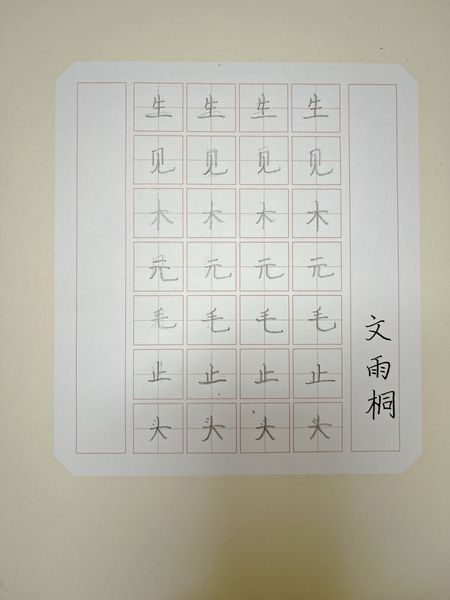 生生生生
见见见见
木木木木
元元元元
毛毛毛毛
止止止止
头头头头
文雨桐